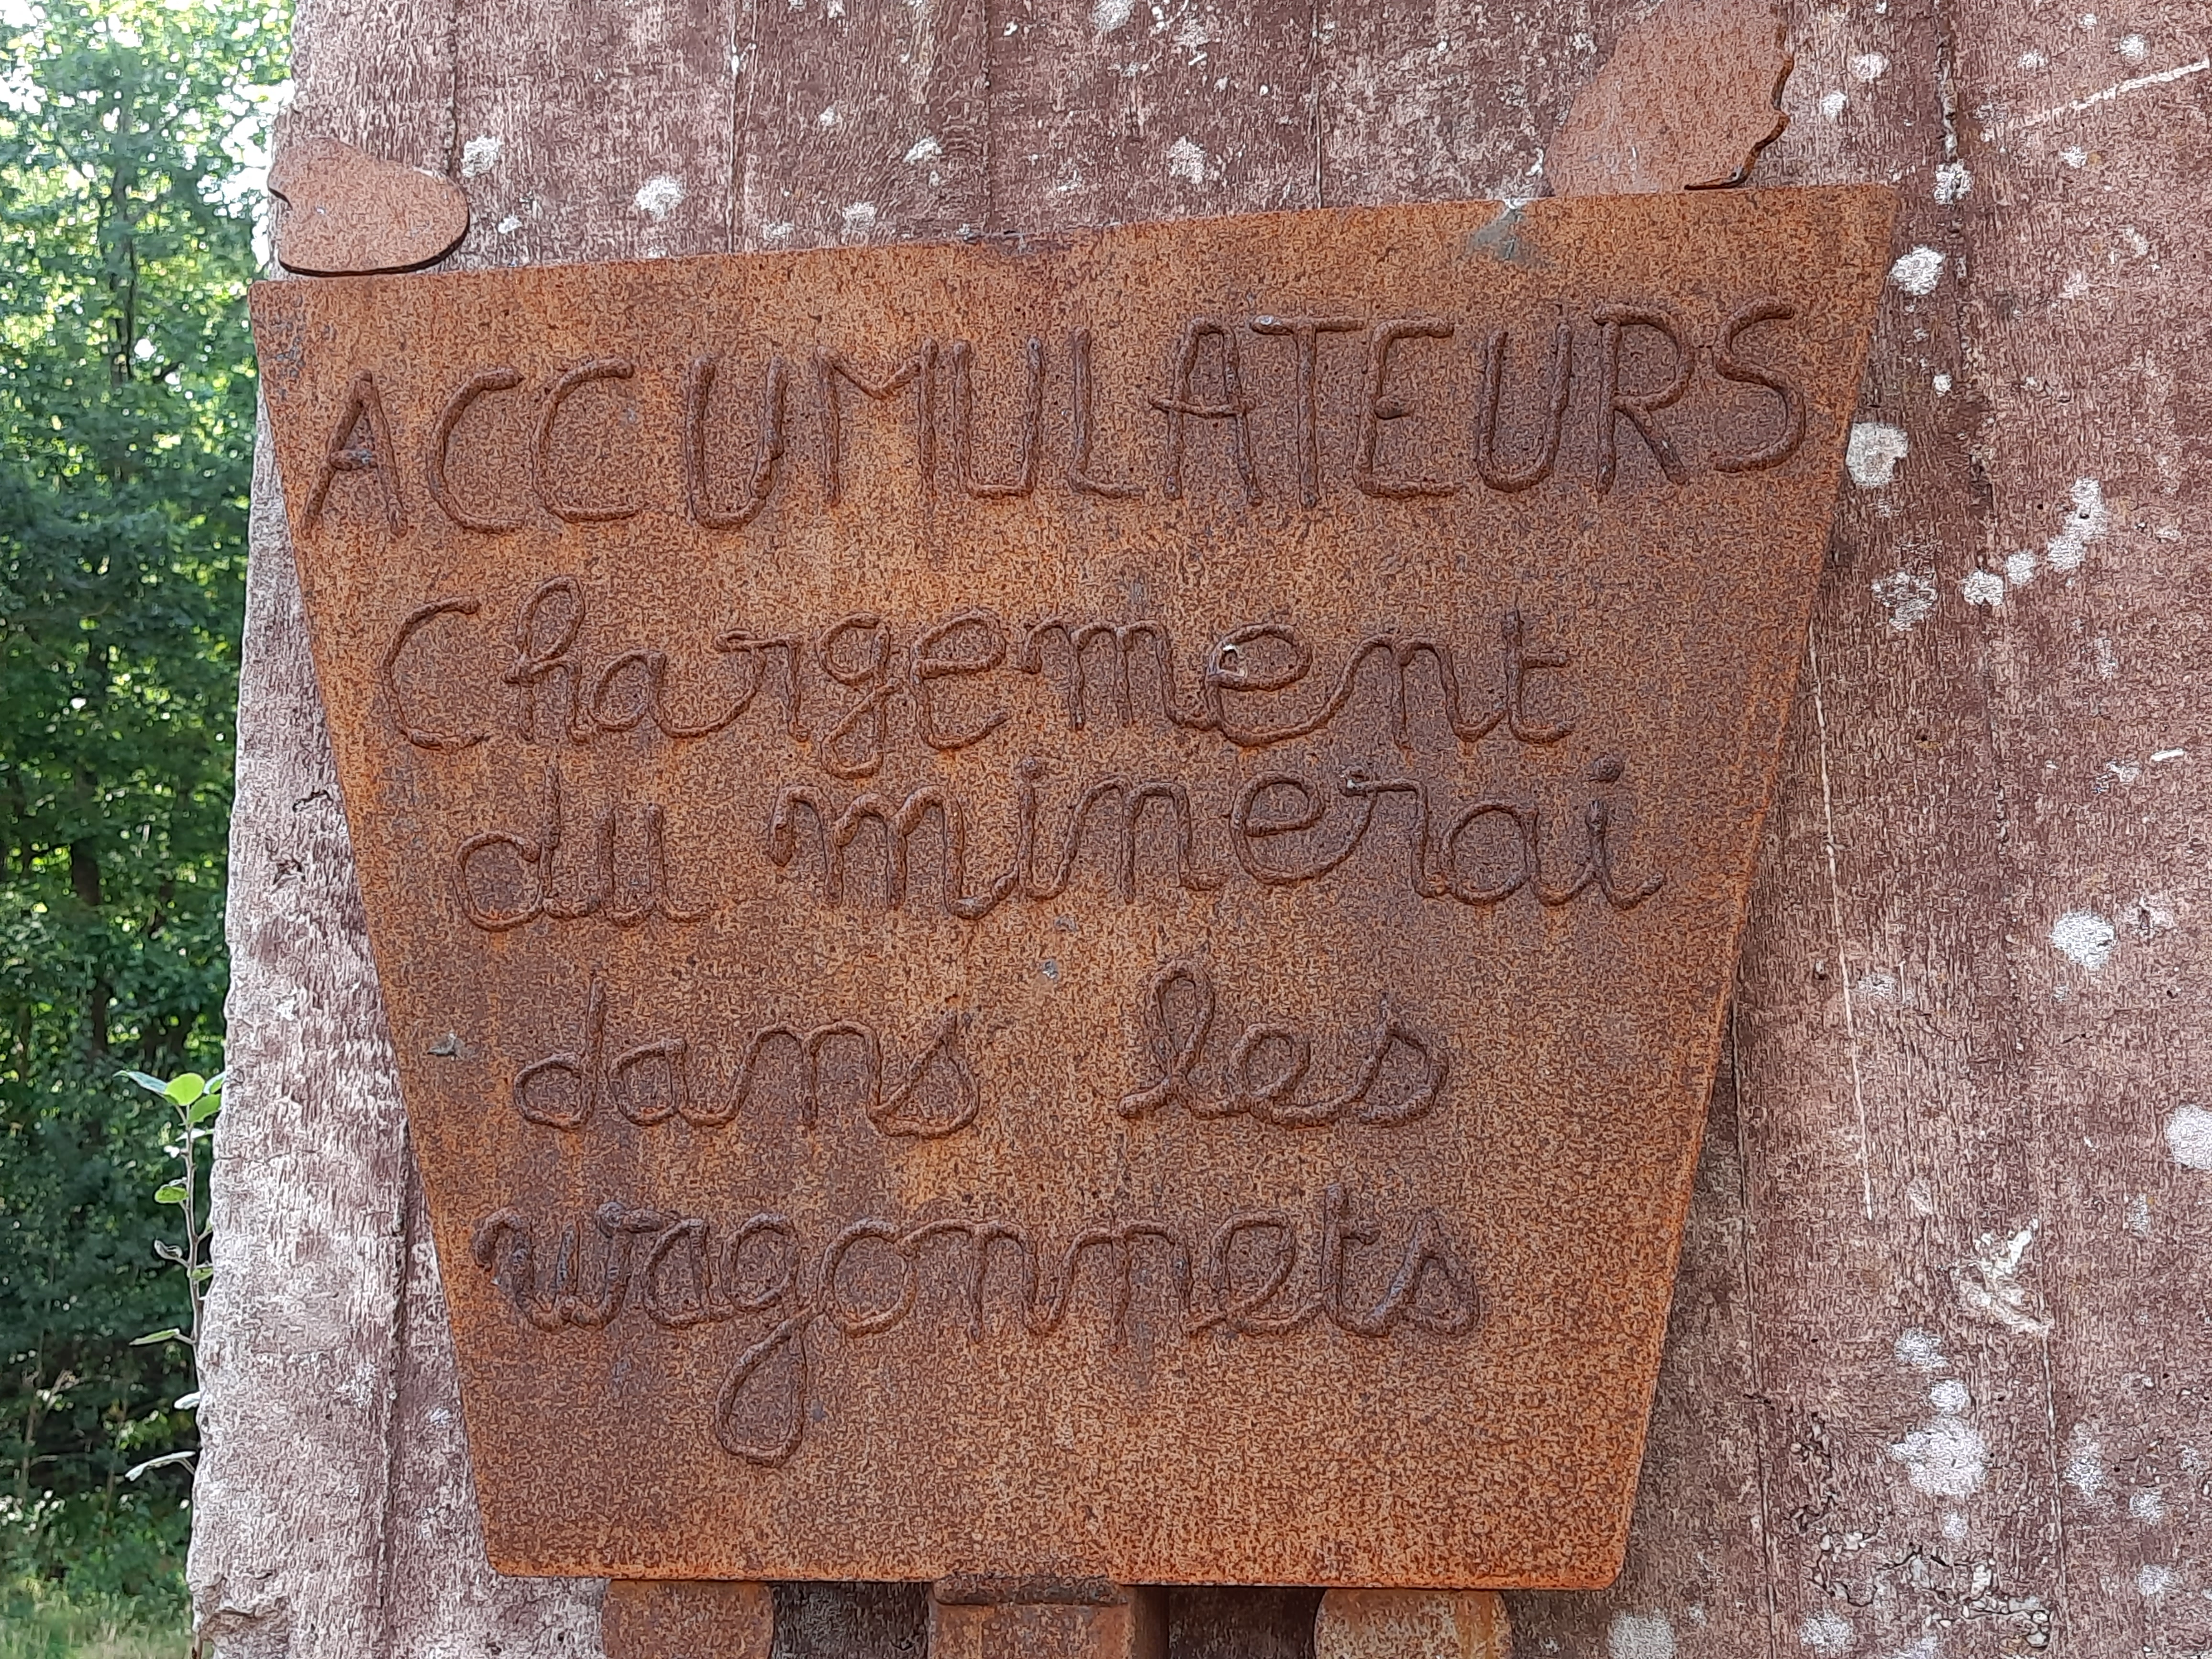 ACCUMULATEURS
Chargement
du minerai
dans les
wagonnets